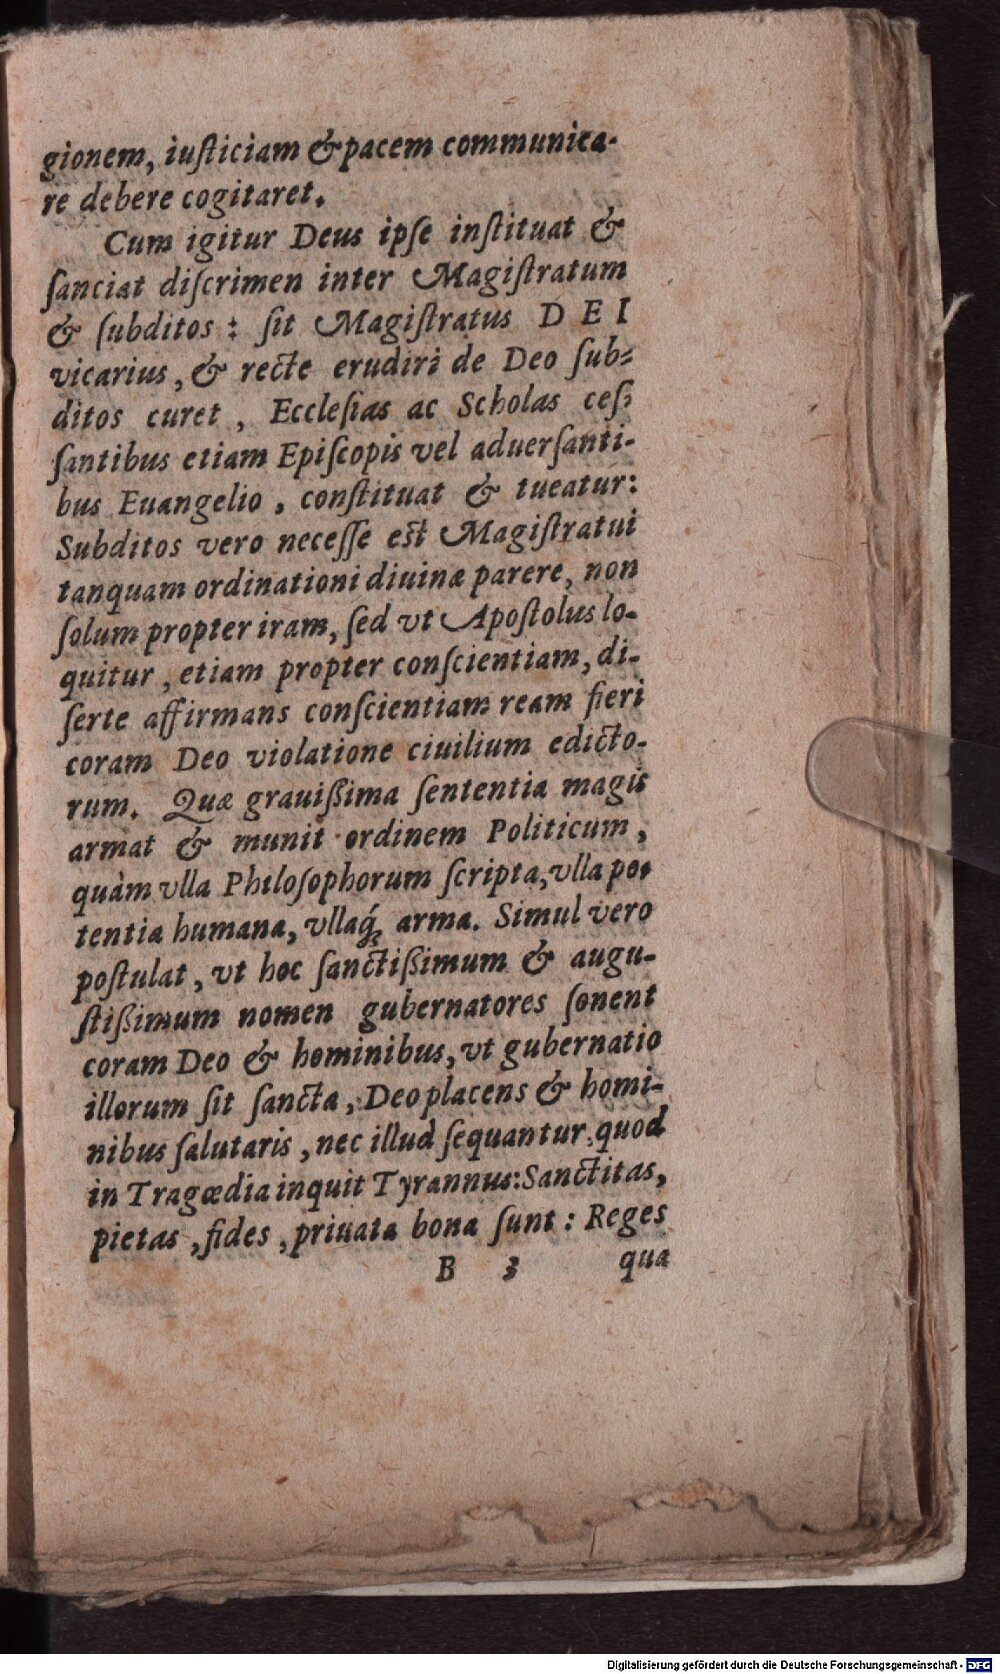 gionem, iuſticiam & pacem communica-
re debere cogitaret.
Cum igitur Deus ipſe inſtituat &
ſanciat diſcrimen inter Magiſtratum
& ſubditos: ſit Magiſtratus DEI
vicarius, & recte erudiri de Deo ſub-
ditos curet, Eccleſias ac Scholas ceſ-
ſantibus etiam Epiſcopis vel aduerſanti-
bus Euangelio, conſtituat & tueatur:
Subditos vero neceſſe eſt Magiſtratui
tanquam ordinationi diuinæ parere, non
ſolum propter iram, ſed vt Apoſtolus lo-
quitur, etiam propter conſcientiam, di-
ſerte affirmans conſcientiam ream fieri
coram Deo violatione ciuilium edicto-
rum. Quæ grauißima ſententia magis
armat & munit ordinem Politicum,
quàm vlla Philoſophorum ſcripta, vlla po-
tentia humana, vllaq́; arma. Simul vero
poſtulat, vt hoc ſanctißimum & augu-
ſtißimum nomen gubernatores ſonent
coram Deo & hominibus, vt gubernatio
illorum ſit ſancta, Deo placens & homi-
nibus ſalutaris, nec illud ſequantur quod
in Tragœdia inquit Tyrannus: Sanctitas,
pietas, fides, priuata bona ſunt: Reges
B 3 qua
Digitalisierung gefördert durch die Deutsche Forschungsgemeinschaft - DFG